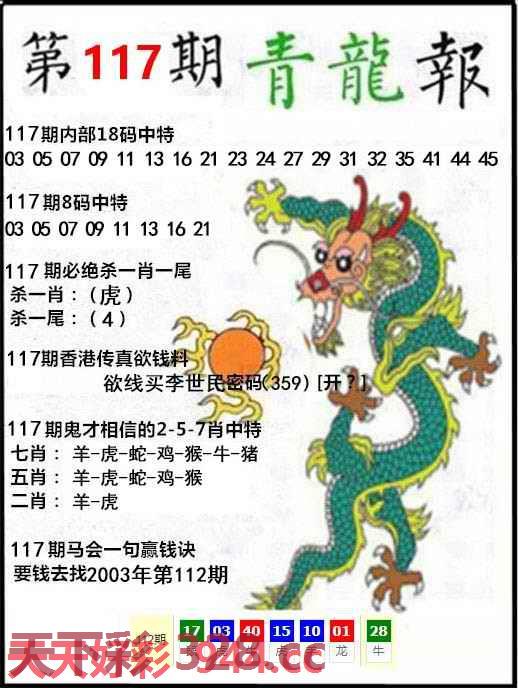 第117期青龍報
117期内部18码中特
03 05 07 09 11 13 16 21 23 24 27 29 31 32 35 41 44 45
117期8码中特
03 05 07 09 11 13 16 21
117期必绝杀一肖一尾
杀一肖：（虎）
杀一尾：（4）
117期香港传真欲钱料
欲线买李世民密码(359) [开？]
117期鬼才相信的2-5-7肖中特
七肖：羊-虎-蛇-鸡-猴-牛-猪
五肖：羊-虎-蛇-鸡-猴
二肖：羊-虎
117期马会一句赢钱诀
要钱去找2003年第112期
112期 17 03 40 15 10 01 28
龙 牛
天下彩 3944.cc